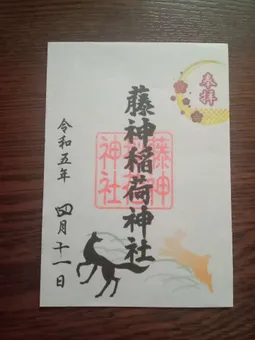 奉拝
藤神稲荷神社
令和五年 四月十一日